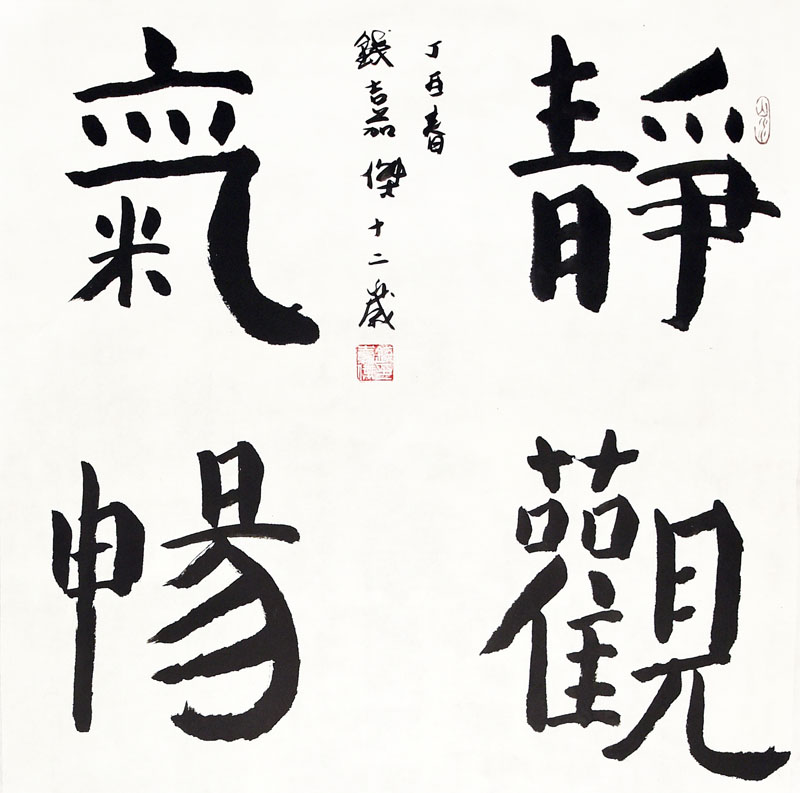 靜觀
丁酉春
錢嘉傑十二歲
氣暢